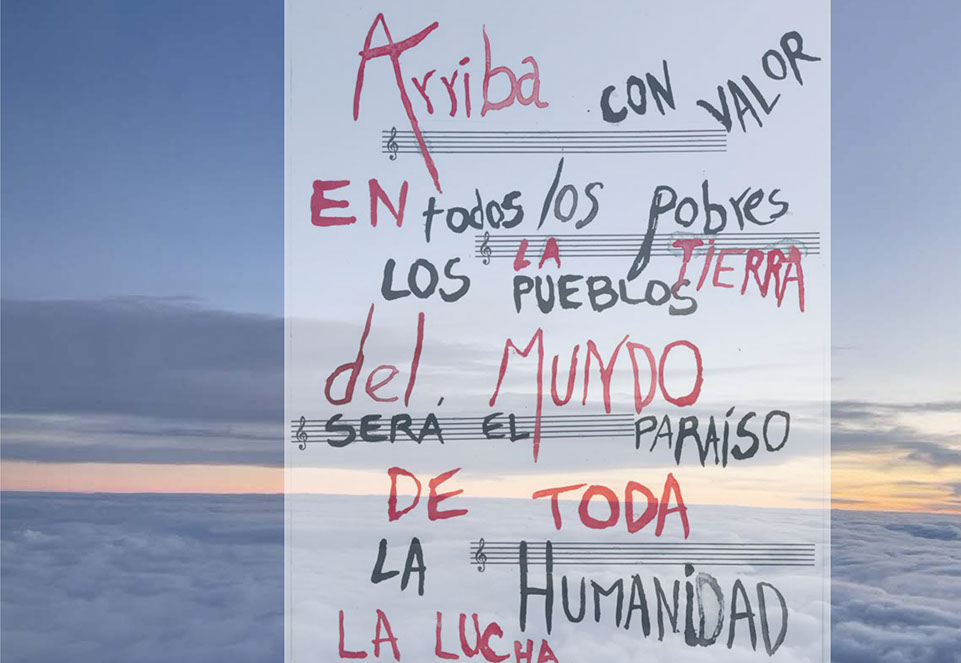 Arriba CON VALOR
EN todos los pobres
LA TIERRA
LOS PUEBLOS
del MUNDO
SERÁ EL PARAÍSO
DE TODA
LA HUMANIDAD
LA LUCHA